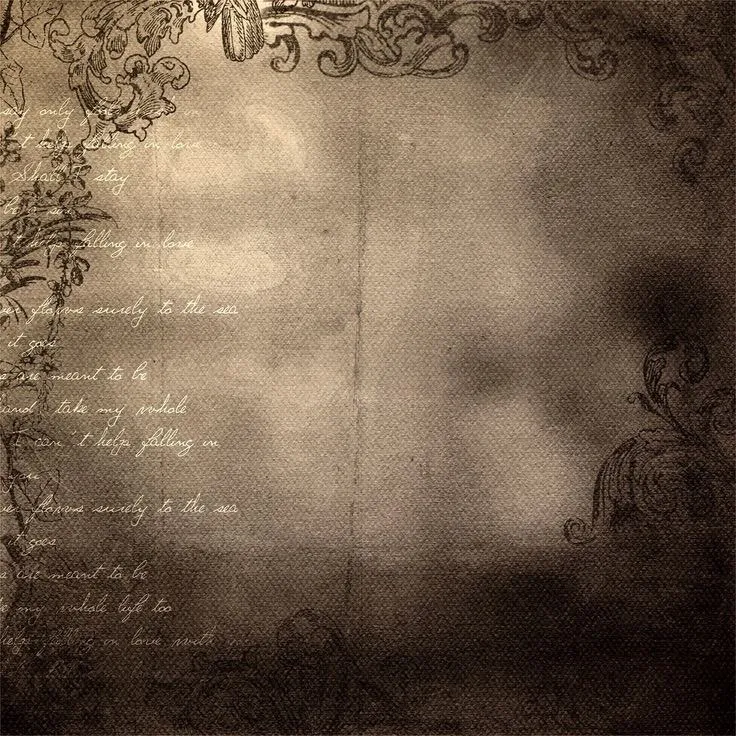 say only fools in
't help falling in love
Shall I stay
be a sin
't help falling in love
er flows surely to the sea
it goes
s are meant to be
hand take my whole
I can't help falling in
you
er flows surely to the sea
it goes
s are meant to be
ke my whole life too
help falling in love with